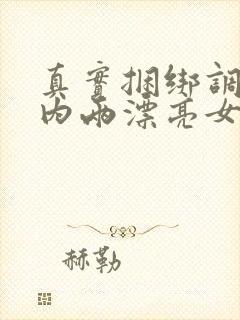 真實捆綁調
内兩漂亮女
赫勒